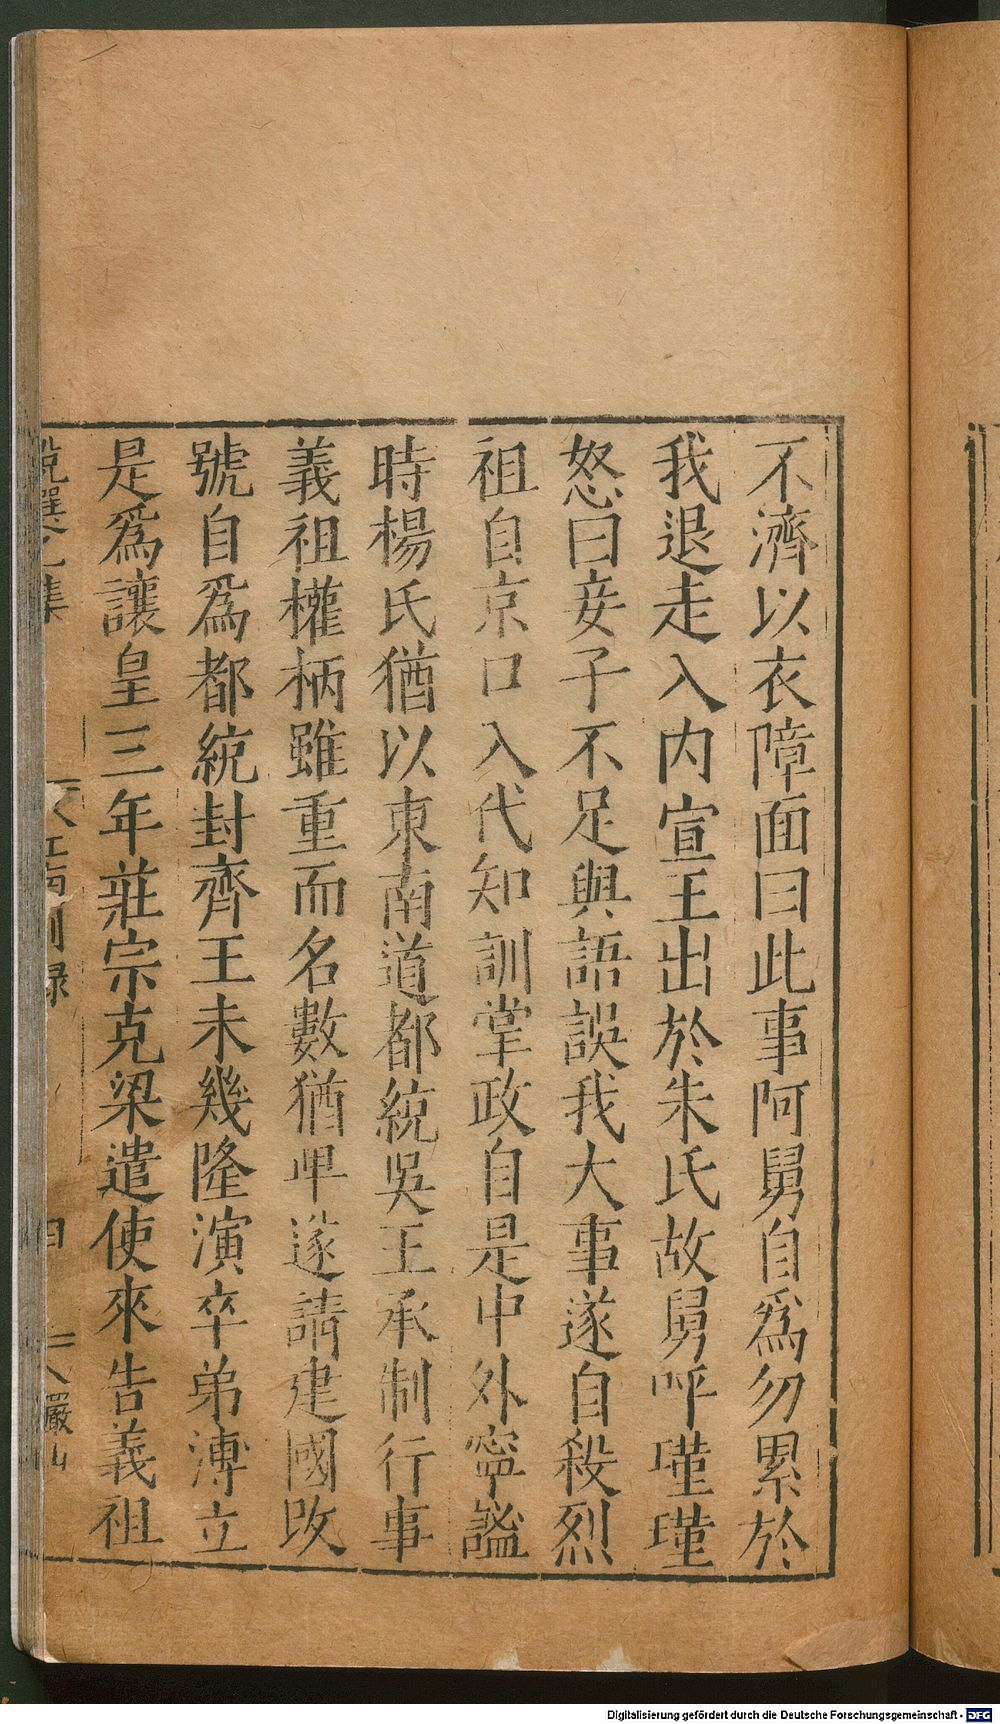 不濟以衣障面曰此事阿舅自爲勿累於
我退走入内宣王出於朱氏故舅呼瑾瑾
怒曰妾子不足與語誤我大事遂自殺烈
祖自京口入代知訓掌政自是中外寧謐
時楊氏猶以東南道都統吳王承制行事
義祖權柄雖重而名數猶卑遂請建國改
號自爲都統封齊王未幾隆演卒弟溥立
是爲讓皇三年莊宗克梁遣使來告義祖
Digitalisierung gefördert durch die Deutsche Forschungsgemeinschaft - DFG